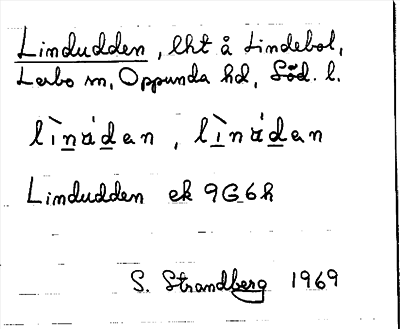 Lindudden, lht å Lindebol,
Lerbo sn, Oppunda hd, Söd. l.
lìnádan, lìnádan
Lindudden ek 9G6h
S. Strandberg 1969